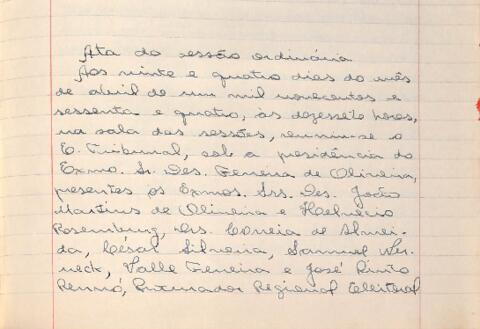 Ata da sessão ordinária
Aos vinte e quatro dias do mês
de abril de um mil novecentos e
sessenta e quatro, às dezesseis horas,
na sala das sessões, reuniu-se o
E. Tribunal, sob a presidência do
Exmo. Sr. Des. Ferreira de Oliveira,
presentes os Exmos. Srs. Des. João
Martins de Oliveira e Helvécio
Rosemburg, Drs. Correia de Almei-
da, Cesar Silveira, Samuel Wer-
neck, Valle Ferreira e José Pinto
Rennó, Procurador Regional Eleitoral